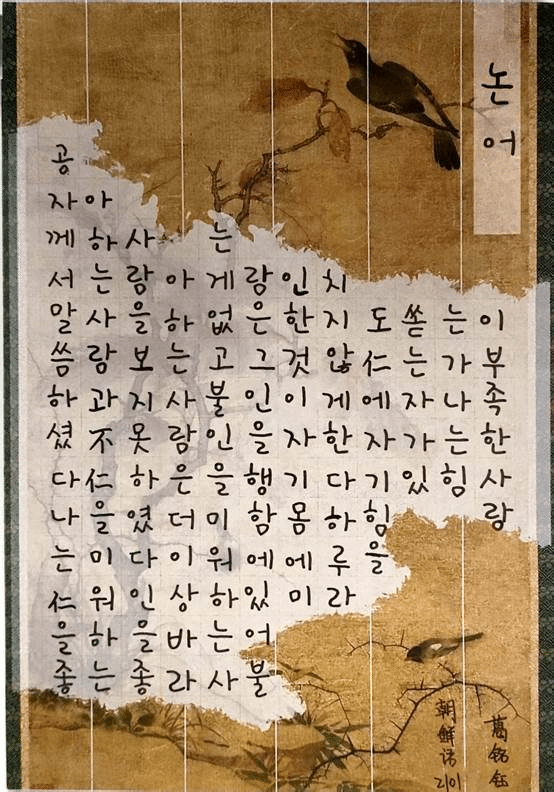 논어
공자께서말씀하셨다나는仁을좋
아하는사람과不仁을미워하는
사람을보지못하였다인을좋
아하는사람은더이상바라
는게없고불인을미워하는사
람은그인을행함에있어불
인한것이자기몸에미
치지않게한다하루라
도仁에자기힘을
쏟는자가있
는가나는힘
이부족한사랑
葛铭钰
朝鲜语2101